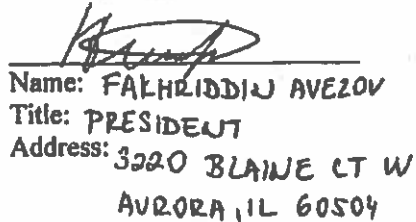 Name: FAKHRIDDIN AVEZOV
Title: PRESIDENT
Address: 3220 BLAINE CT W
AURORA, IL 60504